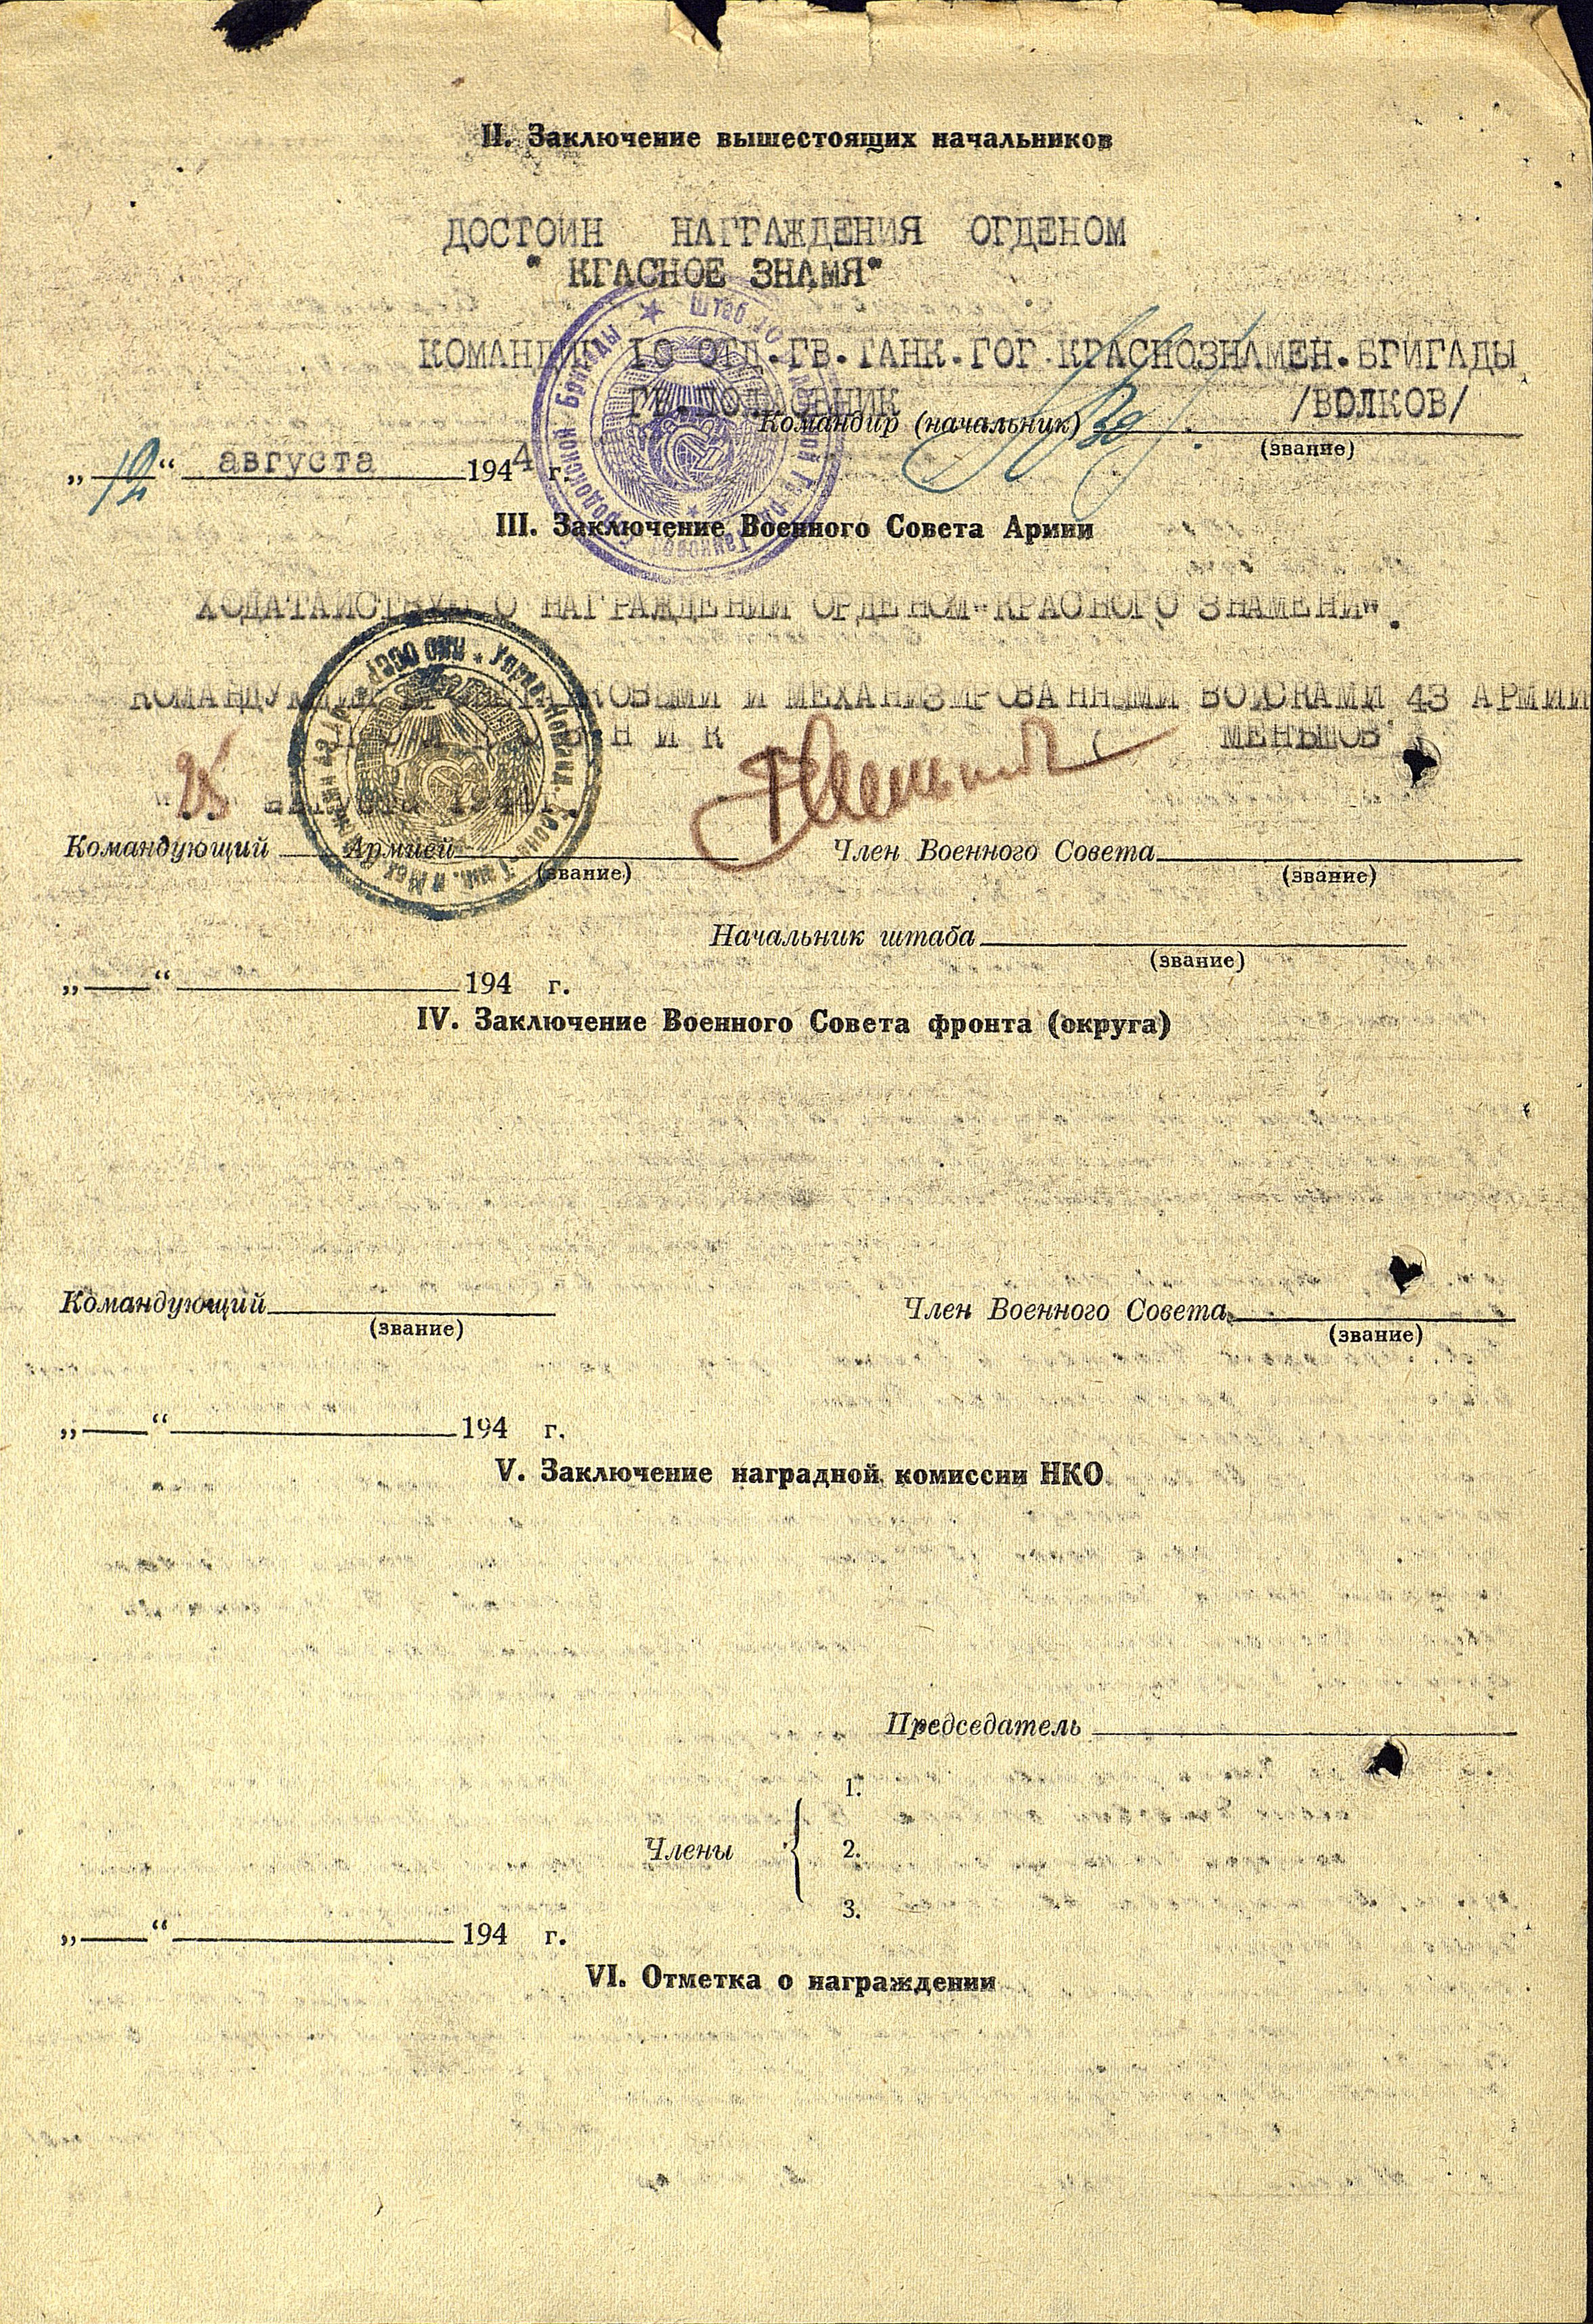 II. Заключение вышестоящих начальников
ДОСТОИН НАГГАЖДЕНИЯ ОГДЕНОМ
" КГАСНОЕ ЗНАМЯ"
КОМАНДИГ 10 ОТД.ГВ.ТАНК.ГОГ.КГАСНОЗНАМЕН.БГИГАДЫ
ГВ.ПОЛКОВНИК /ВОЛКОВ/
Командир (начальник)
(звание)
„12“ августа 1944 г.
III. Заключение Военного Совета Армии
ХОДАТАЙСТВУЮ О НАГРАЖДЕНИИ ОРДЕНОМ "КРАСНОГО ЗНАМЕНИ".
КОМАНДУЮЩИЙ БРОНЕТАНКОВЫМИ И МЕХАНИЗИРОВАННЫМИ ВОЙСКАМИ 43 АРМИИ
ПОЛКОВНИК МЕНЬШОВ
"25" августа 1944 г.
Командующий Армией Член Военного Совета
(звание) (звание)
Начальник штаба
(звание)
„ “ 194 г.
IV. Заключение Военного Совета фронта (округа)
Командующий Член Военного Совета
(звание) (звание)
„ “ 194 г.
V. Заключение наградной комиссии НКО
Председатель
1.
Члены { 2.
3.
„ “ 194 г.
VI. Отметка о награждении